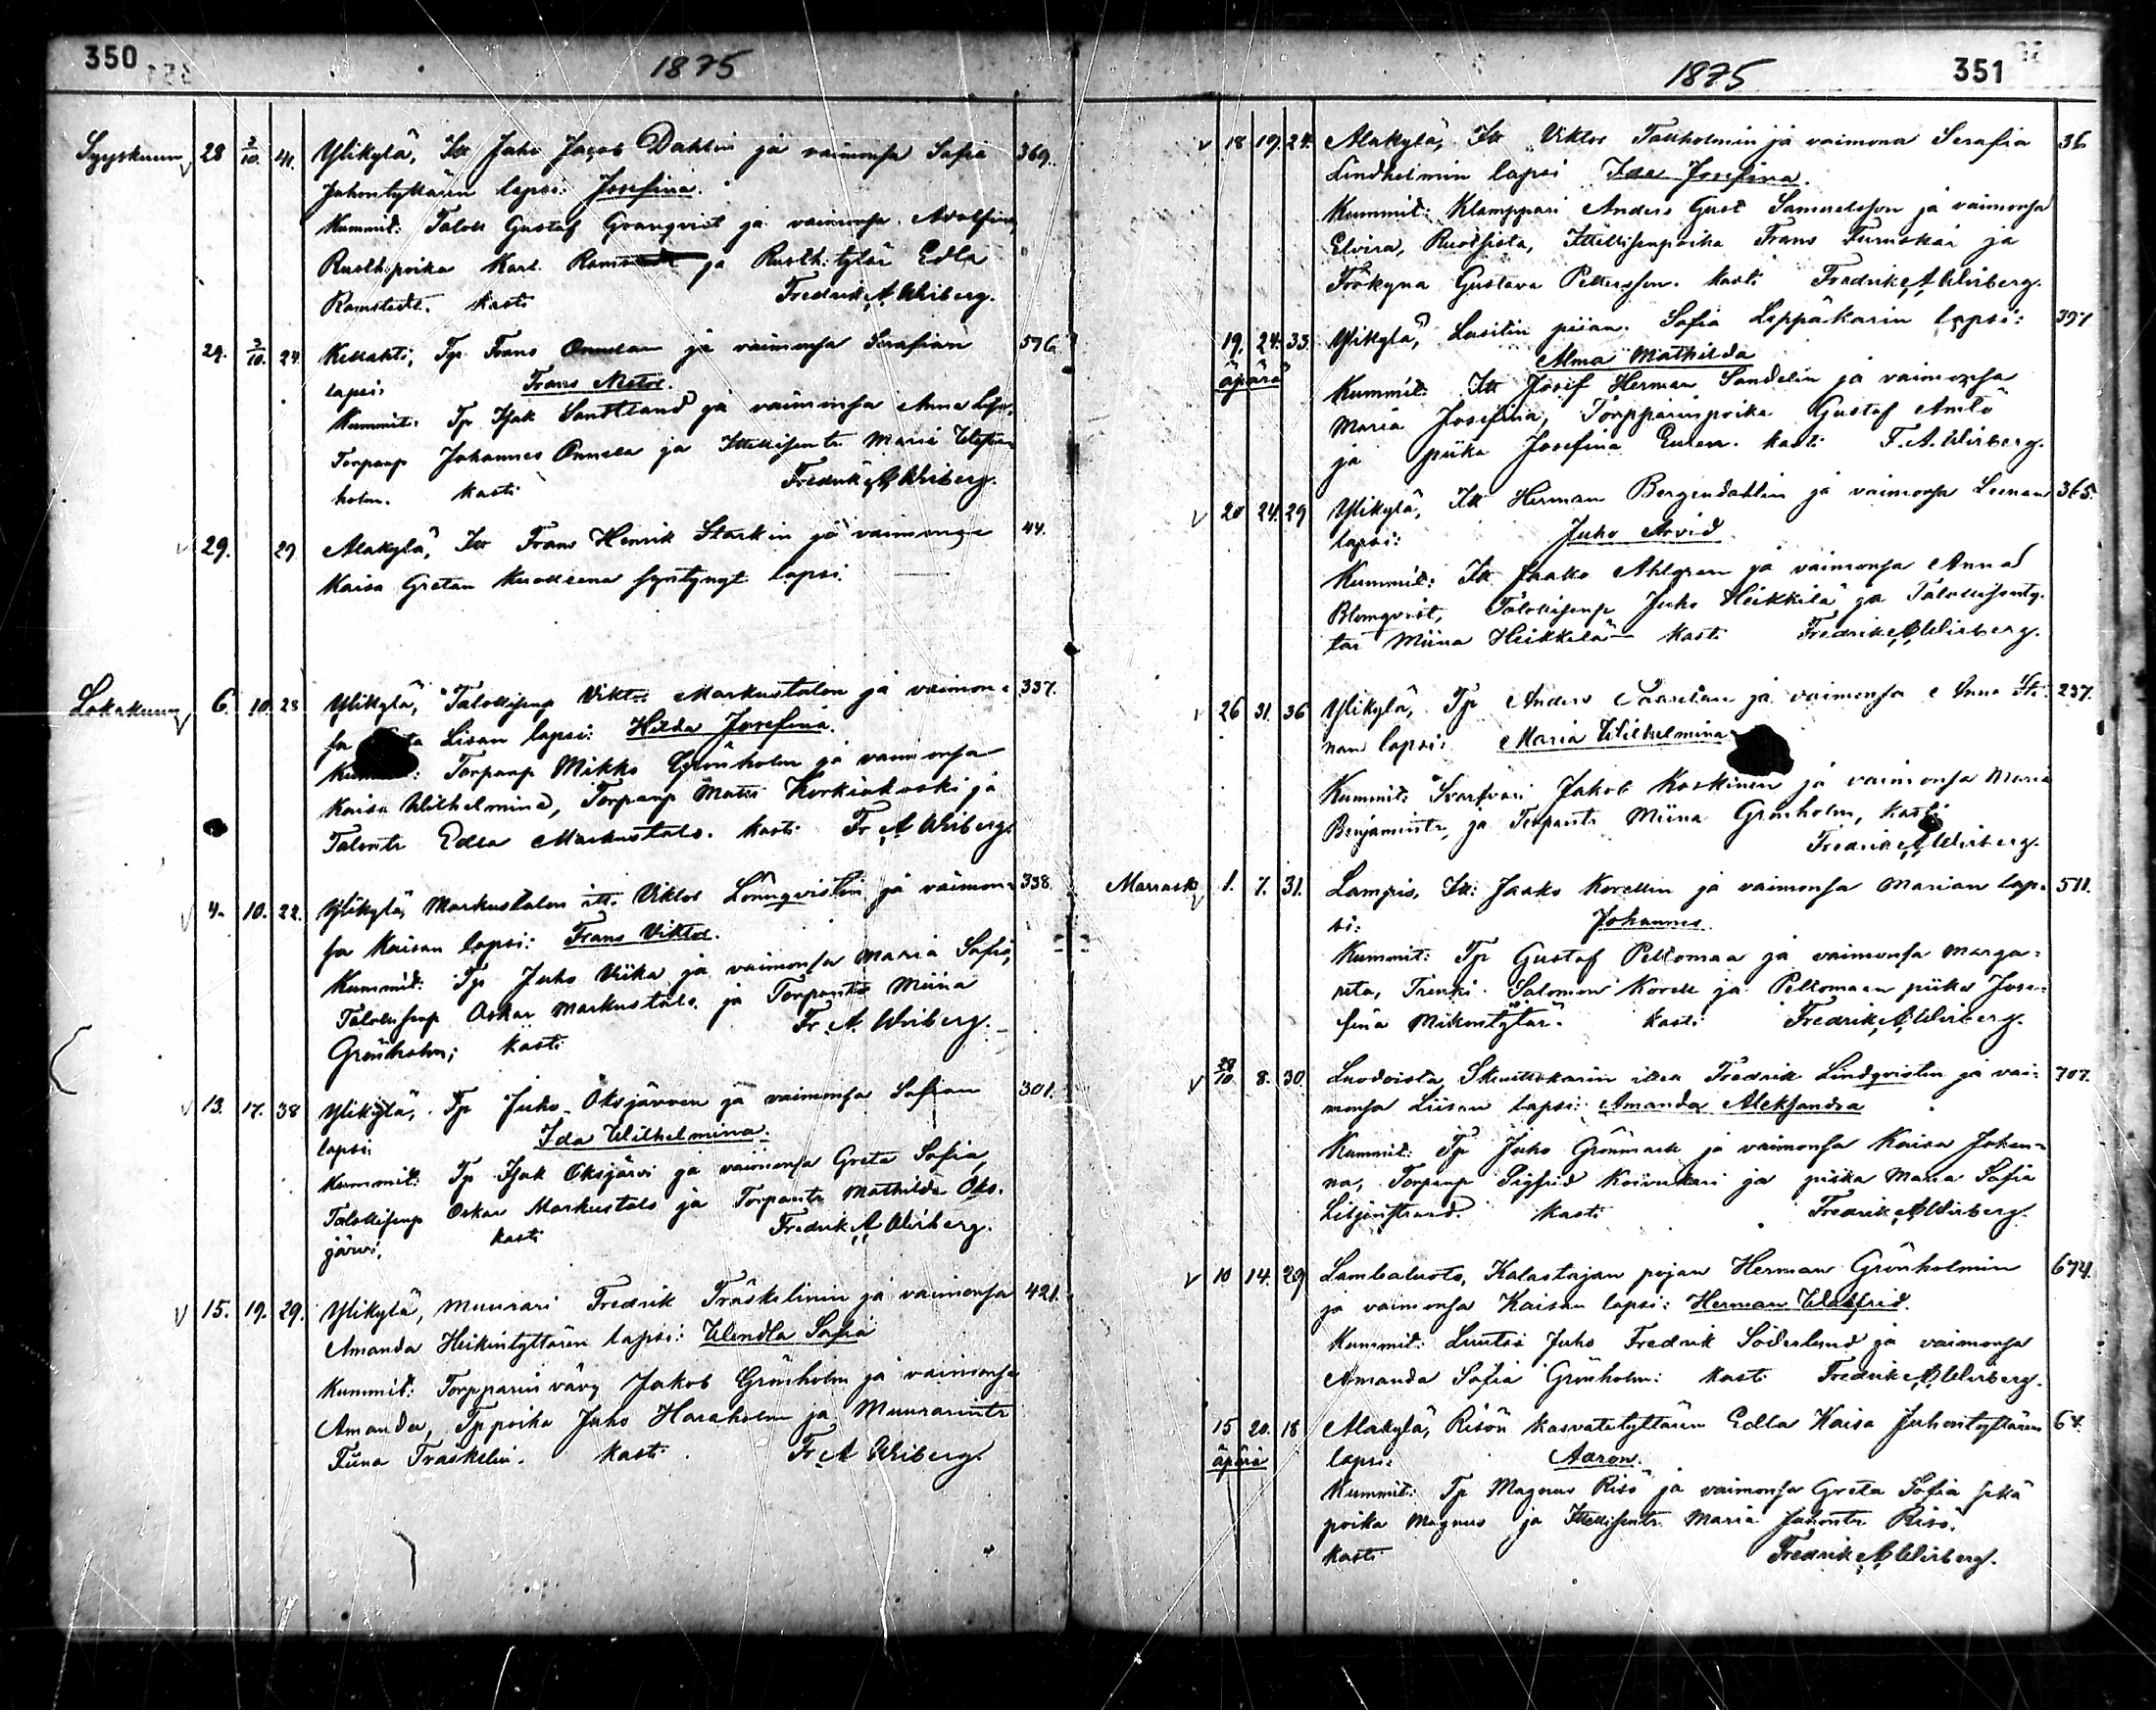 350 1875
Syyskuun 28 2/10. 41. Ylikylä, Itt Juho Jacob Dahlin ja vaimonsa Safia 369.
Juhontyttären lapsi: Josefina.
Kummit: Taloll Gustaf Granqvist ja vaimonsa Adolfina,
Rusth.poika Karl ja Rusth.tytär Edla
Ramstedt. kasti Fredrik A. Wirberg.
29. 3/10. 24. Tp. Frans Onnelan ja vaimonsa Serafian 576
lapsi: Frans Nestor.
Kummit: Tp Isak Santtland ja vaimonsa Anna
Torpanp Johannes Onnela ja Itsellisentr Maria
holm. kasti Fredrik A. Wirberg.
29. 29 Alakylä, Itt Frans Henrik Starkin ja vaimonsa 44.
Kaisa Gretan kuolleena syntynyt lapsi.
Lokakuun 6. 10. 23 Ylikylä, Talollisenp Viktor Markustalon ja vaimon- 337.
sa Lisan lapsi: Hilda Josefina.
Torpanp Mikko Grönholm ja vaimonsa
Kaisa Wilhelmina, Torpanp Matti Korkiakoski ja
Talontr Edla Markustalo. kasti Fr A Wirberg.
4. 10. 22. Ylikylä, Markustalon itt. Viktor Lönnqvistin ja vaimon- 338.
sa Kaisan lapsi: Frans Viktor.
Kummit: Tp Juho Viika ja vaimonsa Maria Safia,
Talollisenp Oskar Markustalo ja Torpantr Miina
Grönholm; kasti Fr. A. Wirberg.
13. 17. 38 Ylikylä, Tp Juho Oksjärven ja vaimonsa Safian 301.
lapsi: Ida Wilhelmina.
Kummit: Tp Isak Oksjärvi ja vaimonsa Greta Safia,
Talollisenp Oskar Markustalo ja Torpantr Mathilda Oks-
järvi, kasti Fredrik A. Wirberg.
15. 19. 29. Ylikylä, Muurari Fredrik Träskelinin ja vaimonsa 421.
Amanda Heikintyttären lapsi: Wendla Safia
Kummit: Torpparin vävy Jakob Grönholm ja vaimonsa
Amanda, Tp poika Juho Haraholm ja Muurarintr
Fiina Träskelin. kasti Fr A Wirberg.
1875 351
18 19. 24. Alakylä, Itt Viktor Tallholmin ja vaimona Serafia 36
Lindholmin lapsi Ida Josefina.
Kummit: Klamppari Anders Gust Samuelsson ja vaimonsa
Elvira, Ruotsista, Itsellisenpoika Frans Furuskär ja
Frökyna Gustava Pettersson. kasti Fredrik A Wirberg.
19. 24. 33. Ylikylä, Lasitin piian Safia Leppäkarin lapsi: 397
äpärä Alma Mathilda
Kummit: Itt Josif Herman Sandelin ja vaimonsa
Maria Josefina, Torpparinpoika Gustaf Anttö
ja piika Josefina kasti F. A. Wirberg.
20 24. 29 Ylikylä, Itt Herman Bergendahlin ja vaimonsa Leenan 365.
lapsi: Juho Arvid
Kummit: Itt Jaako Ahlgren ja vaimonsa Anna
Blomqvist, Talollisenp Juho Heikkilä ja Talollisenty-
tar Miina Heikkilä kasti Fredrik A Wirberg.
26 31. 36 Ylikylä, Tp Anders Saarelan ja vaimonsa Anna Sti- 237.
nan lapsi: Maria Wilhelmina
Kummit: Svarfvari Jakob Koskinen ja vaimonsa Maria
Benjamintr, ja Torpantr Miina Grönholm, kasti
Fredrik A Wirberg.
Marrask 1. 7. 31. Lampis, Itt: Jaako Korellin ja vaimonsa Marian lap- 511.
si: Johannes.
Kummit: Tp Gustaf Peltomaa ja vaimonsa Marga-
reta, Trenki Salomon Korell ja Peltomaan piika Jose-
fina Mikontytär. kasti Fredrik A Wirberg.
29/10. 8. 30. Luodoista, itsell Fredrik Lindqvistin ja vai- 707.
monsa Liisan lapsi: Amanda Aleksandra
Kummit: Tp Juho Grönmark ja vaimonsa Kaisa Johan-
na, Torpanp Sigfrid Koivukari ja piika Maria Safia
Liljestrand. kasti Fredrik A Wirberg.
10 14. 29 Lambaluoto, Kalastajan pojan Herman Grönholmin 674.
ja vaimonsa Kaisan lapsi: Herman Walfrid.
Kummit: Luutsi Juho Fredrik Söderlund ja vaimonsa
Amanda Safia Grönholm: kasti Fredrik A Wirberg.
15 20. 18 Alakylä, Risön kasvatetyttären Edla Kaisa Juhontyttären 64.
äpärä lapsi: Aaron.
Kummit: Tp Magnus Risö ja vaimonsa Greta Safia sekä
poika Magnus ja Itsellisentr Maria Juhontr Risö.
kasti Fredrik A Wirberg.